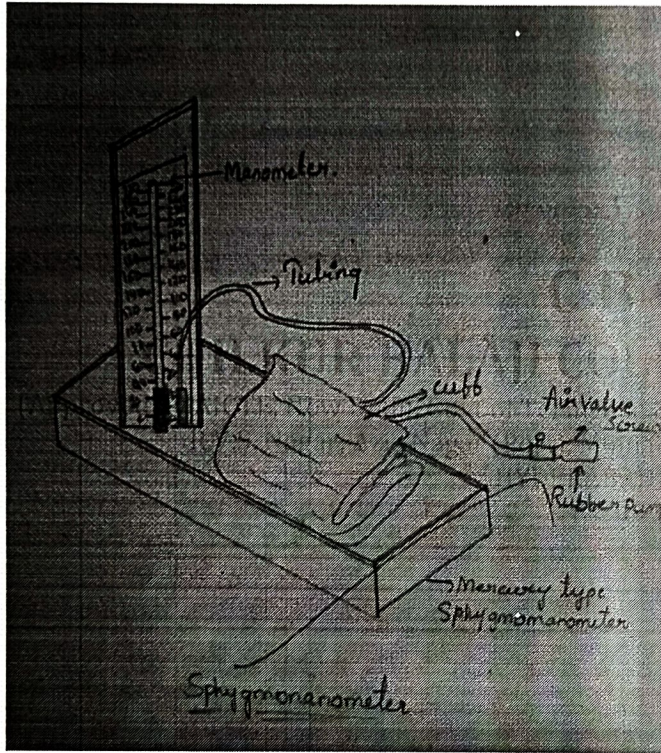 Manometer.
Tubing
cuff
Air value
Screw
Rubber Pum
Mercury type
Sphygmomanometer
Sphygmonanometer